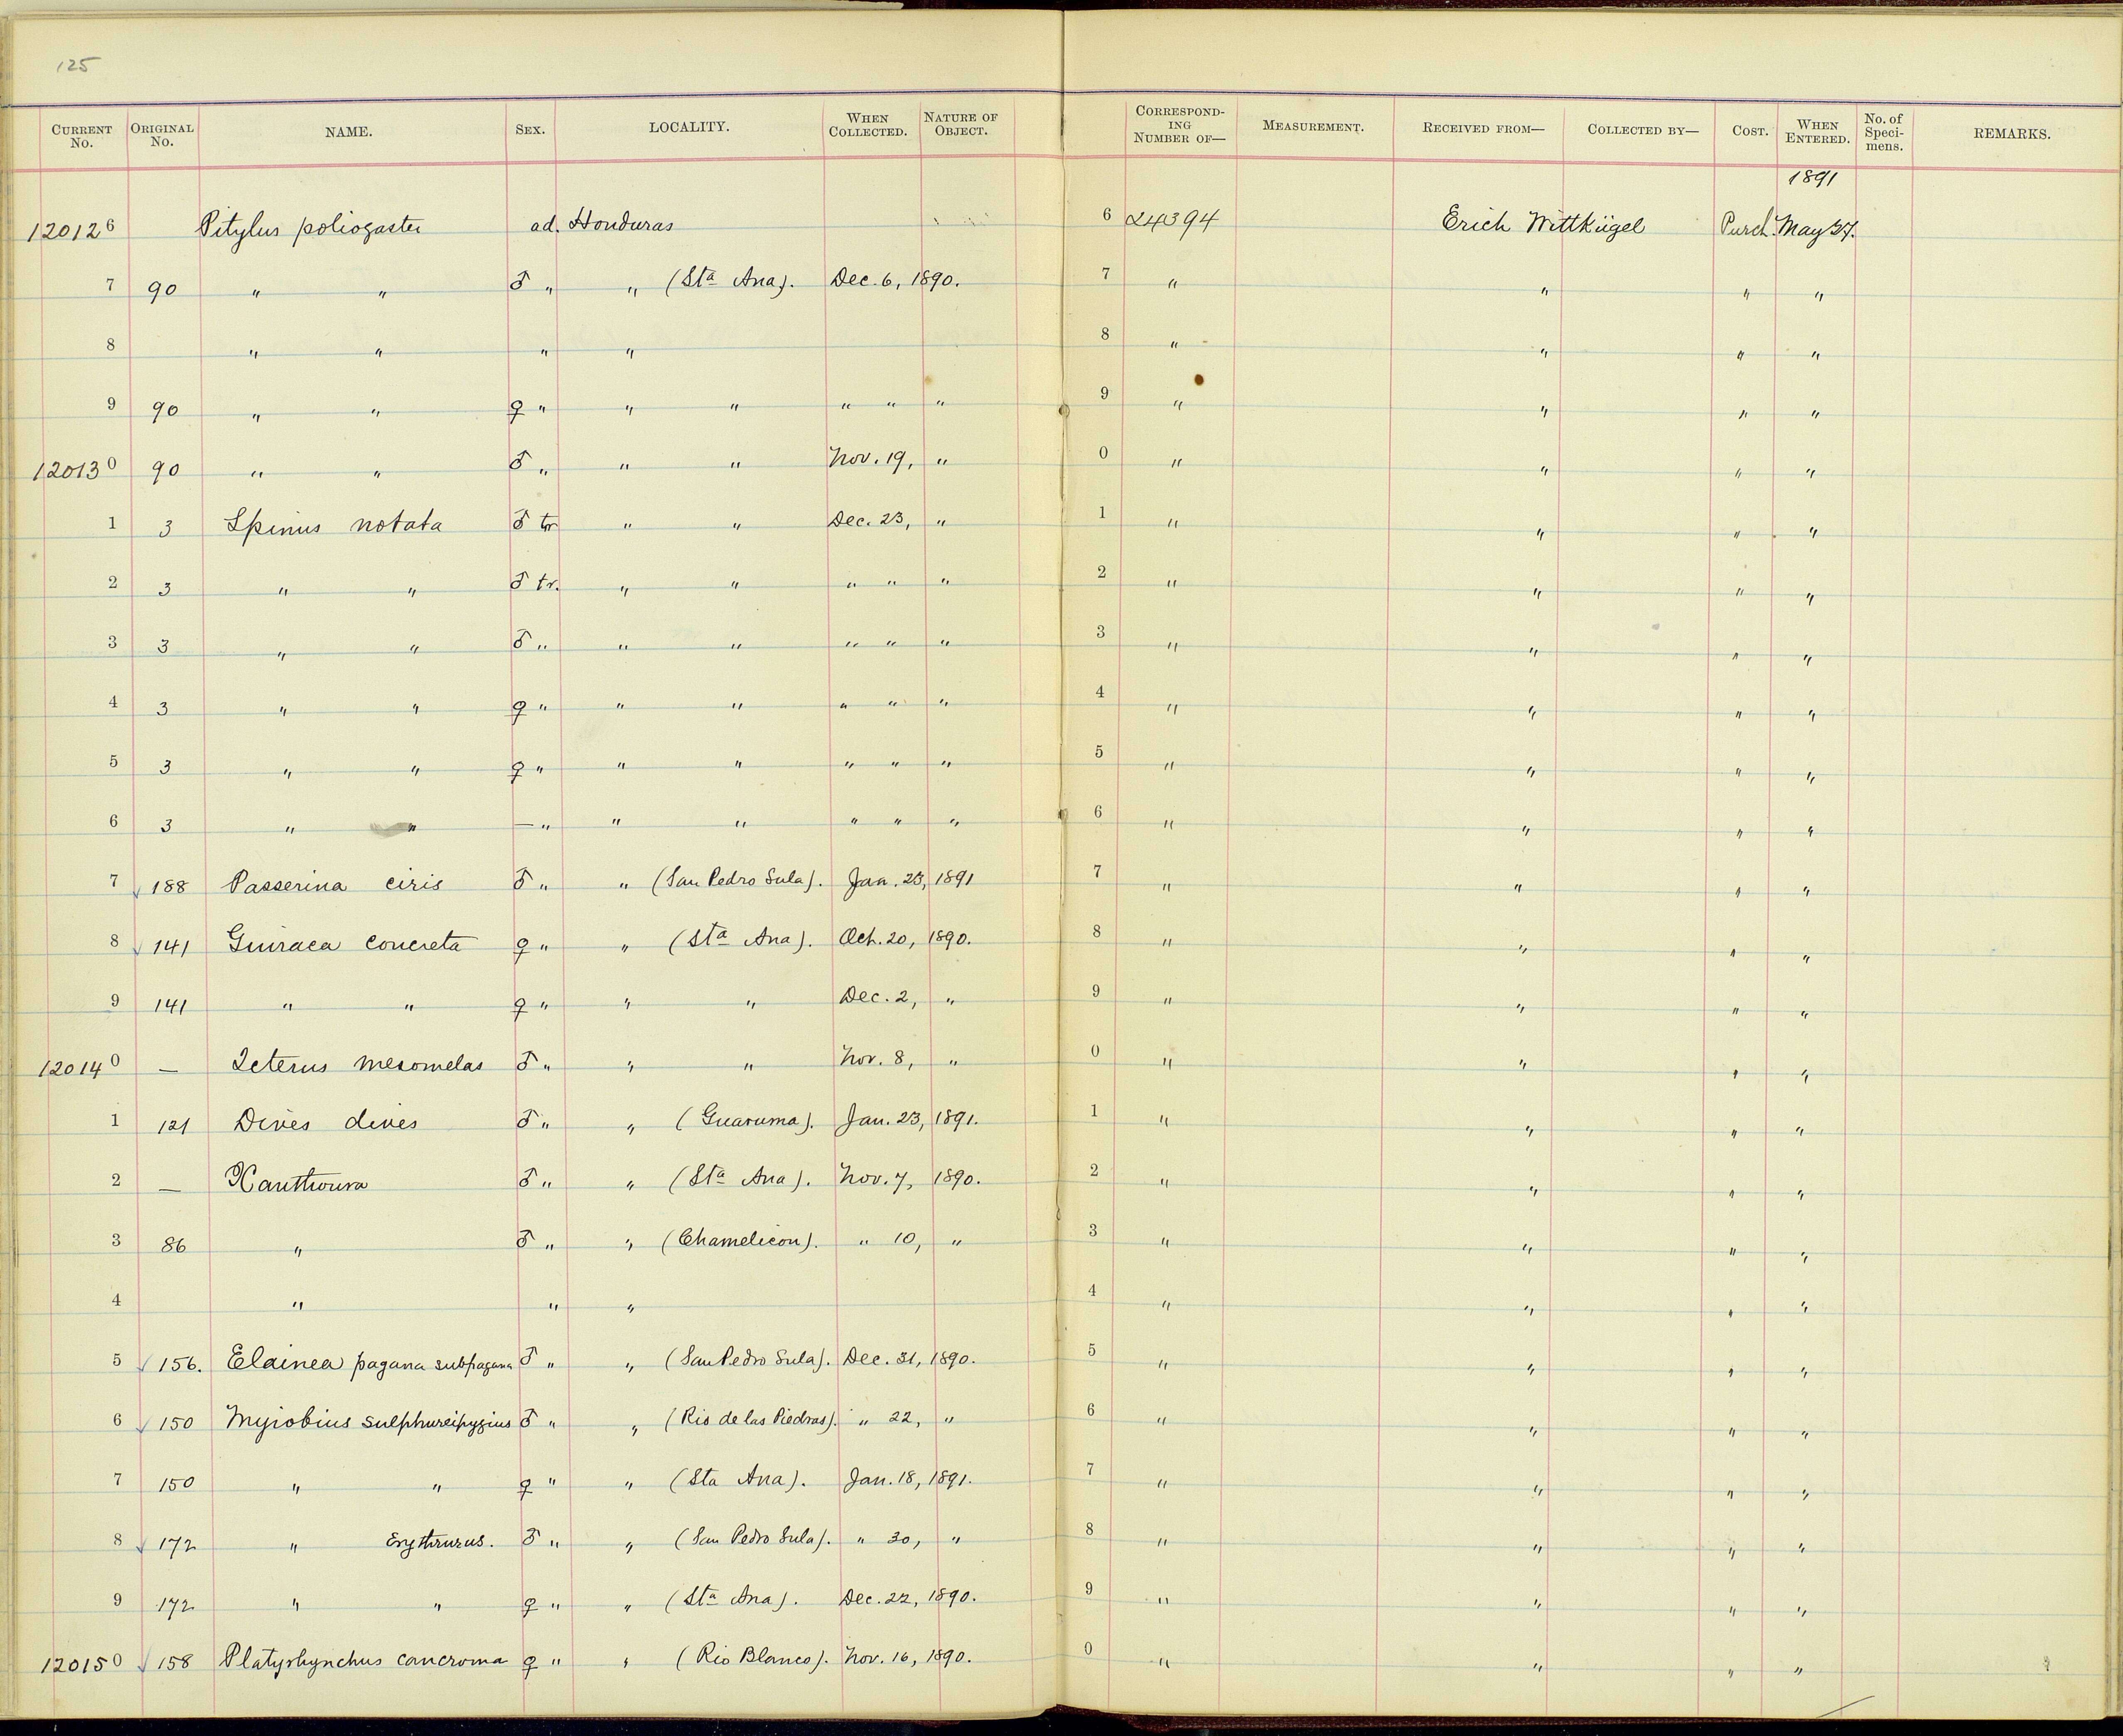 125
CURRENT No. ORIGINAL No. NAME. SEX. LOCALITY. WHEN COLLECTED. NATURE OF OBJECT. CORRESPONDING NUMBER OF— MEASUREMENT. RECEIVED FROM— COLLECTED BY— COST. WHEN ENTERED. No. of Specimens. REMARKS.
1891
120126 Pitylus poliogaster ad. Honduras 6 24394 Erich Wittkügel Purch. May 27.
7 90 " " ♂ " " (Sta Ana). Dec. 6, 1890. 7 " " " "
8 " " " " 8 " " " "
9 90 " " ♀ " " " " " " 9 " " " "
120130 90 " " ♂ " " " Nov. 19, " 0 " " " "
1 3 Spinus notata ♂ tr " " Dec. 23, " 1 " " " "
2 3 " " ♂ tr. " " " " " 2 " " " "
3 3 " " ♂ " " " " " " 3 " " " "
4 3 " " ♀ " " " " " " 4 " " " "
5 3 " " ♀ " " " " " " 5 " " " "
6 3 " " — " " " " " " 6 " " " "
7 ✓ 188 Passerina ciris ♂ " " (San Pedro Sula). Jan. 23, 1891 7 " " " "
8 ✓ 141 Guiraca concreta ♀ " " (Sta Ana). Oct. 20, 1890. 8 " " " "
9 141 " " ♀ " " " Dec. 2, " 9 " " " "
120140 — Icterus mesomelas ♂ " " " Nov. 8, " 0 " " " "
1 121 Dives dives ♂ " " (Guaruma). Jan. 23, 1891. 1 " " " "
2 — Xanthoura ♂ " " (Sta Ana). Nov. 7, 1890. 2 " " " "
3 86 " ♂ " " (Chamelicon). " 10, " 3 " " " "
4 " " " 4 " " " "
5 ✓ 156. Elainea pagana subpagana ♂ " " (San Pedro Sula). Dec. 31, 1890. 5 " " " "
6 ✓ 150 Myiobius sulphureipygius ♂ " " (Rio de las Piedras). " 22, " 6 " " " "
7 150 " " ♀ " " (Sta Ana). Jan. 18, 1891. 7 " " " "
8 ✓ 172 " Erythrurus. ♂ " " (San Pedro Sula). " 30, " 8 " " " "
9 172 " " ♀ " " (Sta Ana). Dec. 22, 1890. 9 " " " "
120150 ✓ 158 Platyrhynchus cancroma ♀ " " (Rio Blanco). Nov. 16, 1890. 0 " " " "